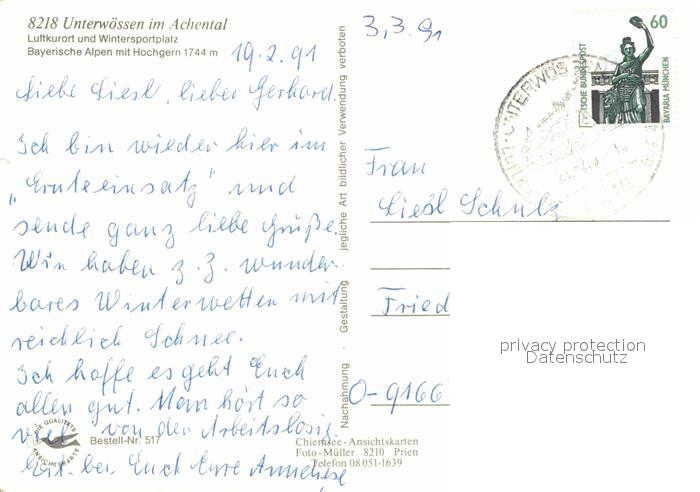 8218 Unterwössen im Achental
Luftkurort und Wintersportplatz
Bayerische Alpen mit Hochgern 1744 m
19.2.91
Liebe Liesl, lieber Gerhard.
Ich bin wieder hier im
„Ernteeinsatz" und
sende ganz liebe Grüße.
Wir haben z.Z. wunder-
bares Winterwetter mit
reichlich Schnee.
Ich hoffe es geht Euch
allen gut. Man hört so
viel von den Arbeitslosig-
keit. bei Euch Eure Anneliese
DIE QUALITÄTS
ANSICHTSKARTE
Bestell-Nr. 517
Nachahmung Gestaltung jegliche Art bildlicher Verwendung verboten
Chiemsee-Ansichtskarten
Foto-Müller 8210 Prien
Telefon 08051-1639
3,3.91
60
DEUTSCHE BUNDESPOST
BAYARIA MÜNCHEN
UNTERWÖSSEN
Frau
Liesl Schulz
Fried
O-9166
privacy protection
Datenschutz